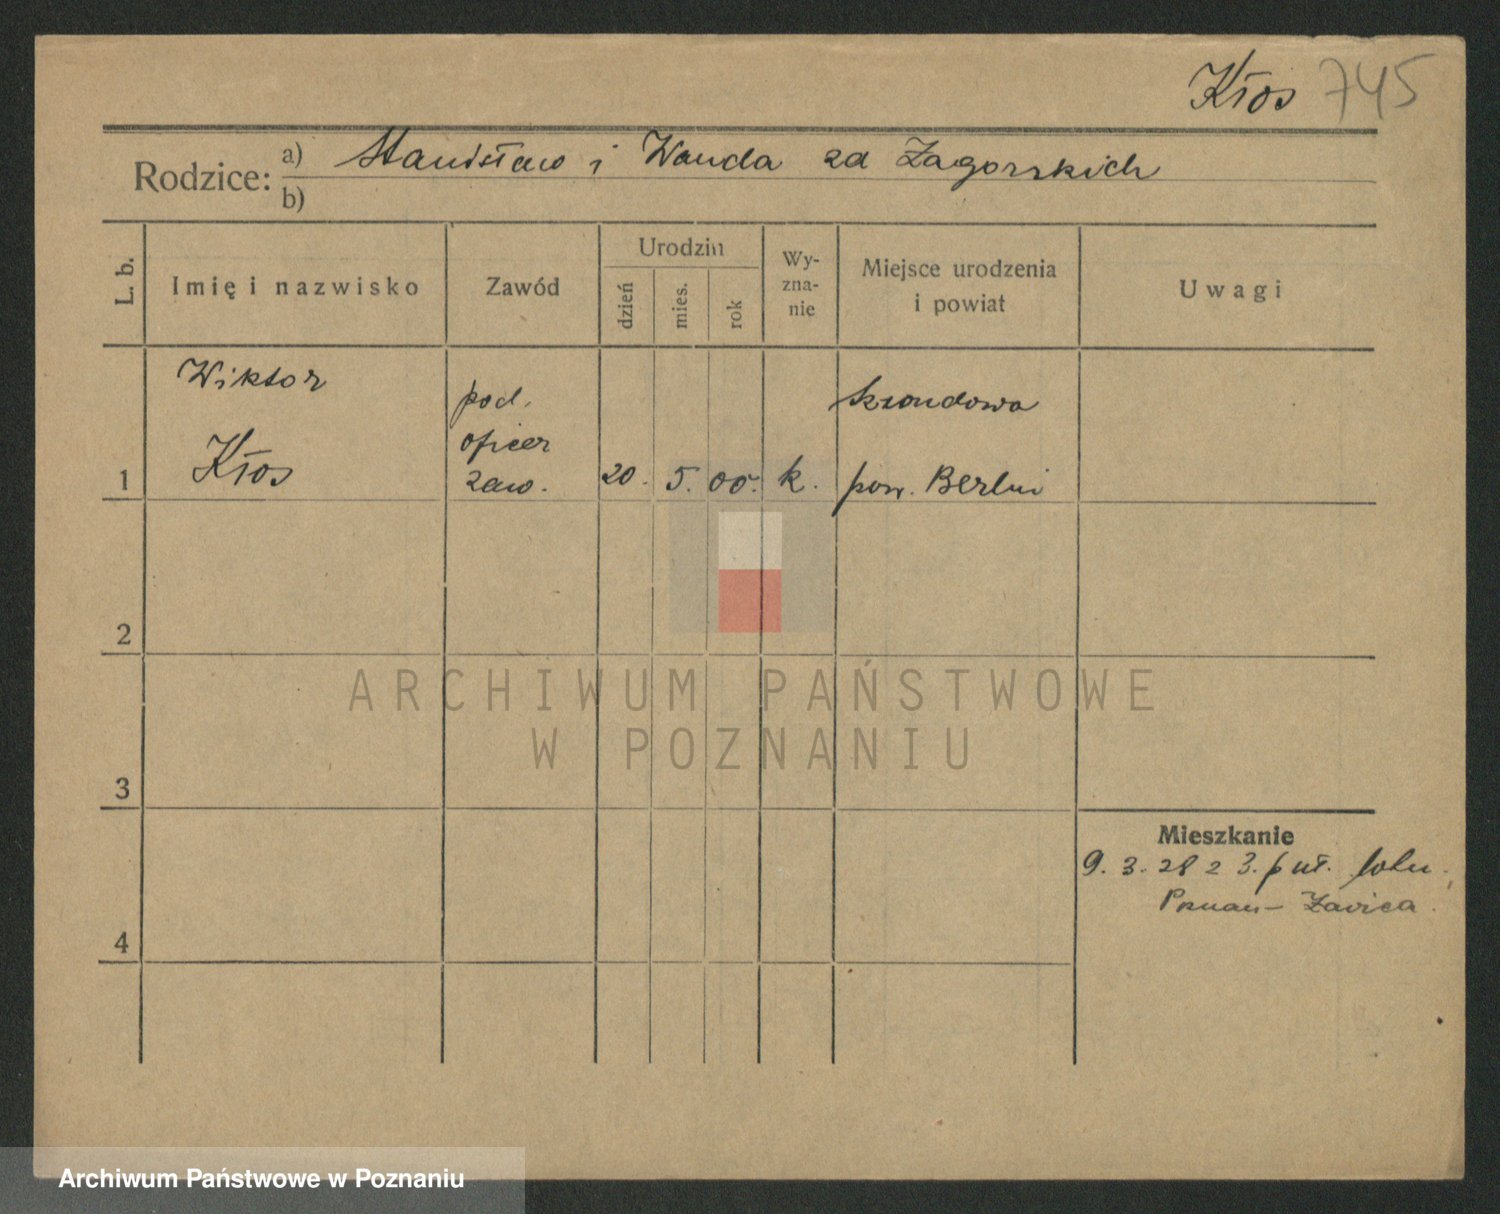 Kłos 745
Rodzice: a) Stanisław i Wanda zd Zagorskich
b)
L. b.
Imię i nazwisko
Zawód
Urodzin
dzień
mies.
rok
Wy-
zna-
nie
Miejsce urodzenia
i powiat
Uwagi
1
Wiktor
Kłos
pod.
oficer
zaw.
20. 5. 00. k.
pow. Berlin
2
3
4
ARCHIWUM PAŃSTWOWE
W POZNANIU
Mieszkanie
9. 3. 28 z 3. puł. lotn.
Poznań - Ławica.
Archiwum Państwowe w Poznaniu